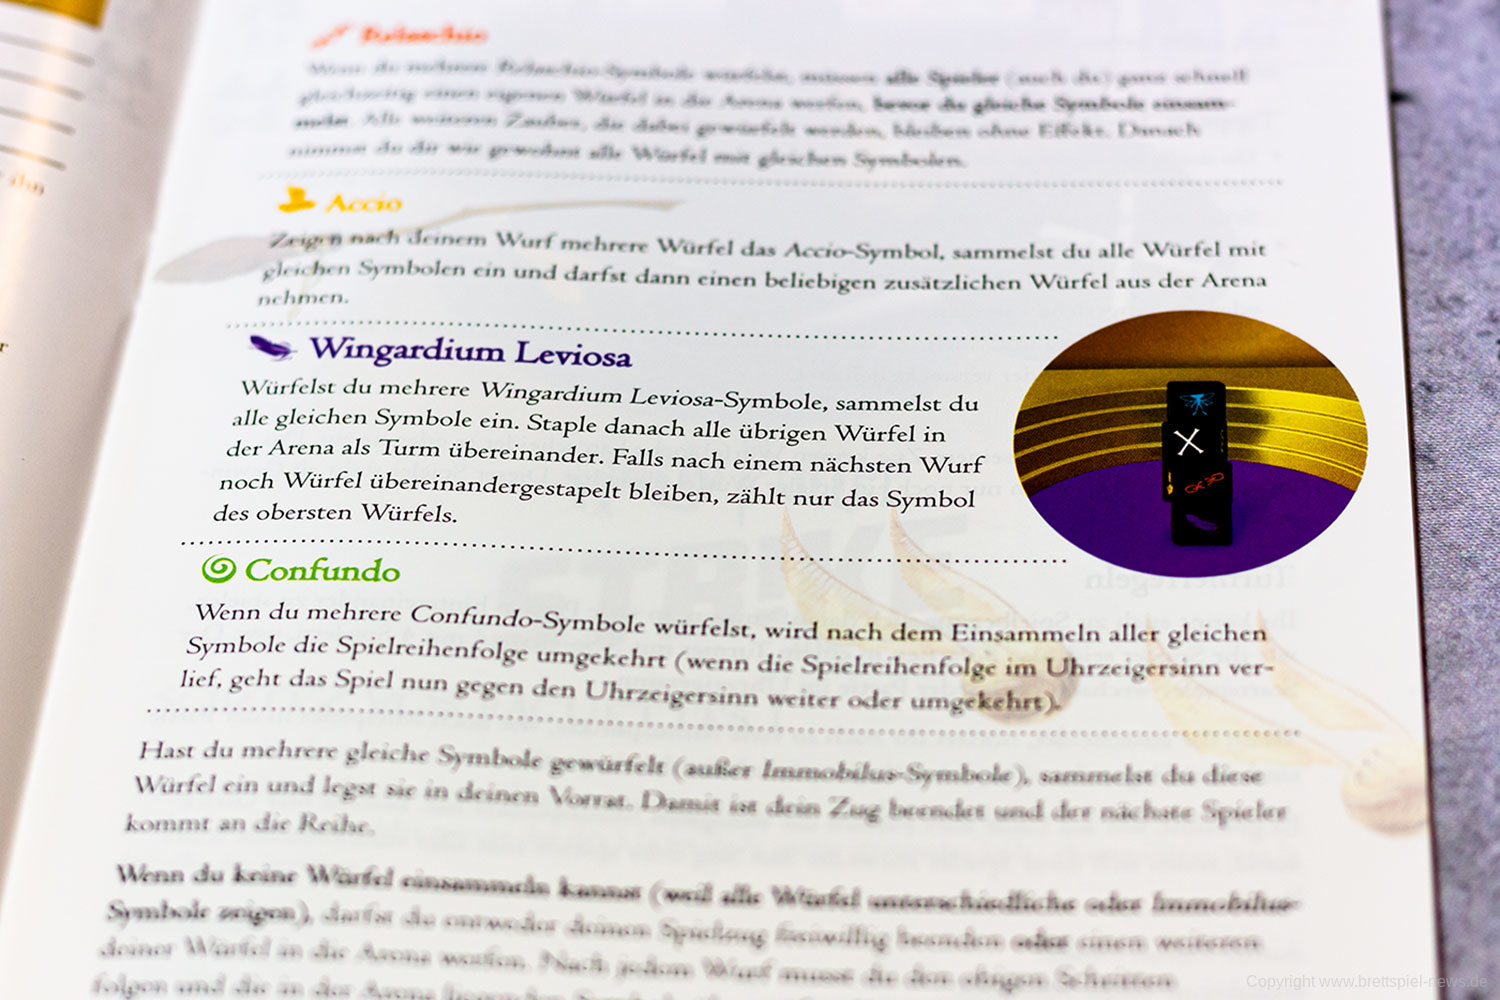 Relaschio
Wenn du mehrere Relaschio-Symbole würfelst, müssen alle Spieler (auch du) ganz schnell
gleichzeitig einen eigenen Würfel in die Arena werfen, bevor du gleiche Symbole einsam-
melst. Alle weiteren Zauber, die dabei gewürfelt werden, bleiben ohne Effekt. Danach
nimmst du dir wie gewohnt alle Würfel mit gleichen Symbolen.
Accio
Zeigen nach deinem Wurf mehrere Würfel das Accio-Symbol, sammelst du alle Würfel mit
gleichen Symbolen ein und darfst dann einen beliebigen zusätzlichen Würfel aus der Arena
nehmen.
Wingardium Leviosa
Würfelst du mehrere Wingardium Leviosa-Symbole, sammelst du
alle gleichen Symbole ein. Staple danach alle übrigen Würfel in
der Arena als Turm übereinander. Falls nach einem nächsten Wurf
noch Würfel übereinandergestapelt bleiben, zählt nur das Symbol
des obersten Würfels.
Confundo
Wenn du mehrere Confundo-Symbole würfelst, wird nach dem Einsammeln aller gleichen
Symbole die Spielreihenfolge umgekehrt (wenn die Spielreihenfolge im Uhrzeigersinn ver-
lief, geht das Spiel nun gegen den Uhrzeigersinn weiter oder umgekehrt).
Hast du mehrere gleiche Symbole gewürfelt (außer Immobilus-Symbole), sammelst du diese
Würfel ein und legst sie in deinen Vorrat. Damit ist dein Zug beendet und der nächste Spieler
kommt an die Reihe.
Wenn du keine Würfel einsammeln kannst (weil alle Würfel unterschiedliche oder Immobilus-
Symbole zeigen), darfst du entweder deinen Spielzug freiwillig beenden oder einen weiteren
deiner Würfel in die Arena werfen. Nach jedem Wurf musst du den obigen Schritten
folgen und die in der Arena liegenden
ihn
r
Copyright www.brettspiel-news.de